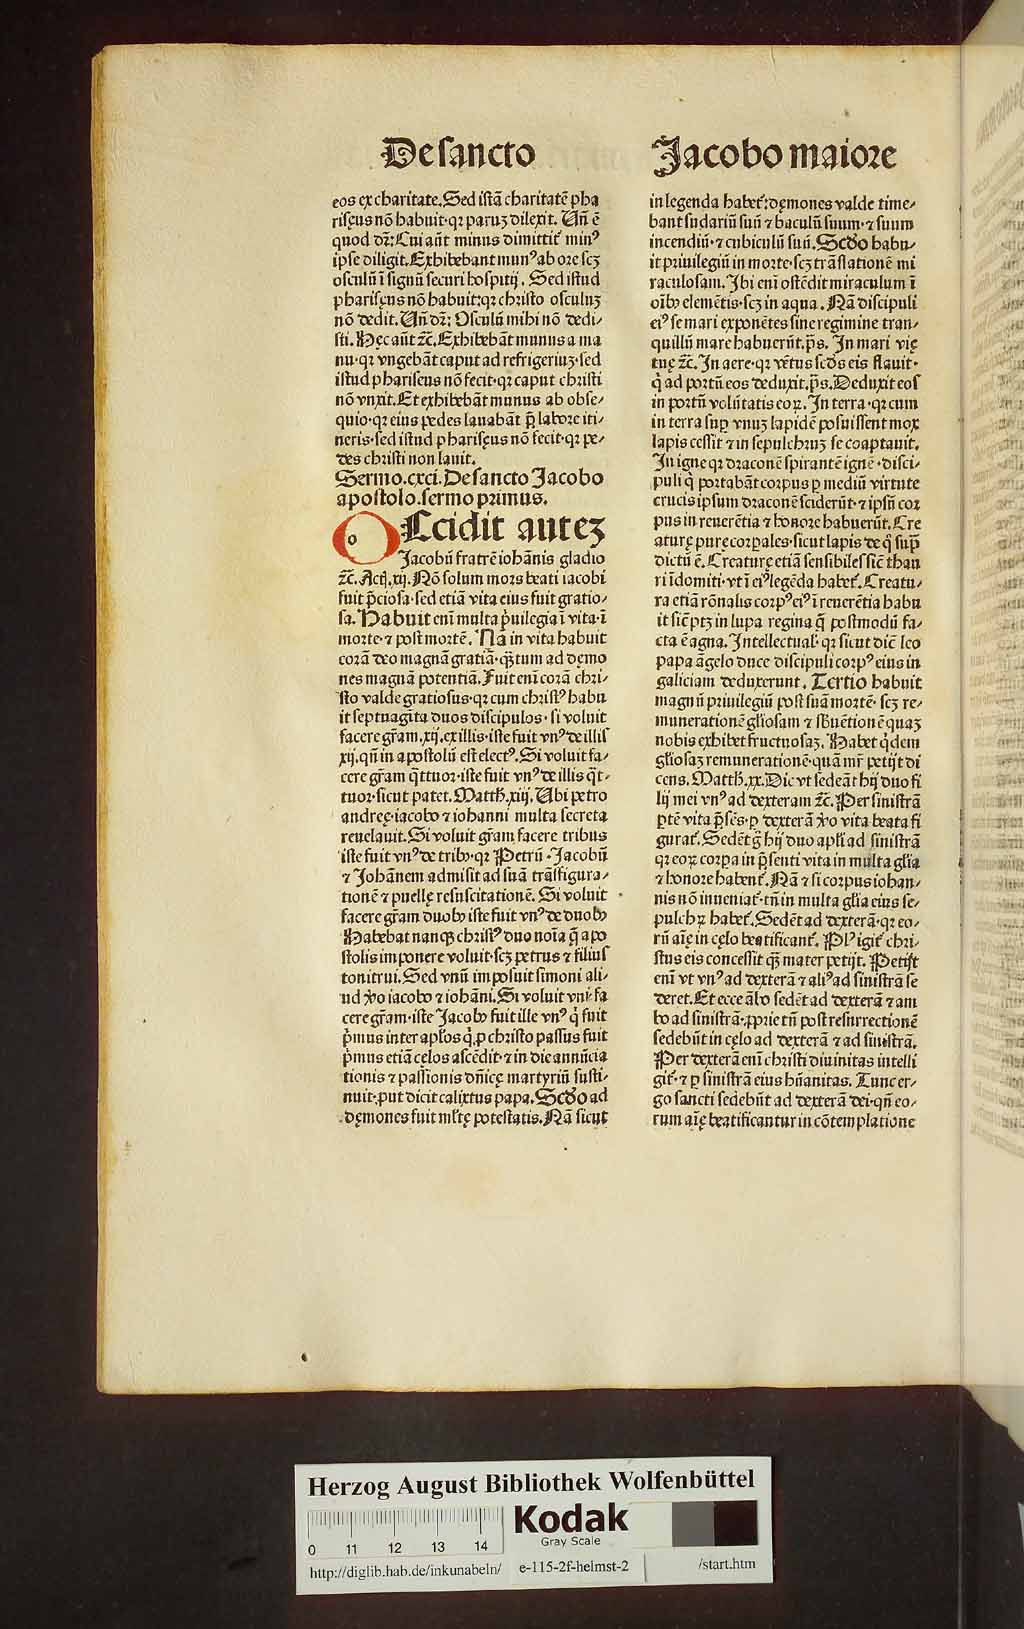 De sancto
Jacobo maiore
eos ex charitate. Sed istā charitatē pha
risęus nō habuit· qꝛ paruꝫ dilexit. Un̄ ē
quod dꝛ̄: Cui aūt minus dimittit᷑ minꝰ
ipse diligit. Exhibebant munꝰ ab ore scꝫ
osculū ī signū securi hospitij. Sed istud
pharisęus nō habuit: qꝛ christo osculuꝫ
nō dedit. Un̄ dꝛ̄: Osculū mihi nō dedi⸗
sti. Hęc aūt ⁊c̄. Exhibebāt munus a ma
nu· qꝛ vngebāt caput ad refrigeriuꝫ· sed
istud phariseus nō fecit· qꝛ caput christi
nō vnxit. Et exhibebāt munus ab obse⸗
quio· qꝛ eius pedes lauabāt p̄ labore iti⸗
neris· sed istud pharisęus nō fecit· qꝛ pe⸗
des christi non lauit.
Sermo .cxci. De sancto Jacobo
apostolo. sermo primus.
o Ccidit auteꝫ
Jacobū fratrē iohānis gladio
⁊c̄. Act̄. xij. Nō solum mors beati iacobi
fuit p̄ciosa· sed etiā vita eius fuit gratio⸗
sa. Habuit enī multa p̄uilegia ī vita· ī
morte· ⁊ post mortē. Nā in vita habuit
corā deo magnā gratiā· qꝫtum ad dęmo
nes magnā potentiā. Fuit enī corā chri⸗
sto valde gratiosus· qꝛ cum christꝰ habu
it septuagīta duos discipulos· si voluit
facere gr̄am .xij. ex illis· iste fuit vnꝰ de illis
xij. qn̄ in apostolū est electꝰ. Si voluit fa⸗
cere gr̄am q̄ttuor· iste fuit vnꝰ de illis q̄t⸗
tuor· sicut patet. Matth. xiij. Ubi petro
andreę· iacobo ⁊ iohanni multa secreta
reuelauit. Si voluit gr̄am facere tribus
iste fuit vnꝰ de tribꝰ· qꝛ Petrū· Jacobū
⁊ Johānem admisit ad suā trāsfigura⸗
tionē ⁊ puellę resuscitationē. Si voluit
facere gr̄am duobꝰ iste fuit vnꝰ de duobꝰ
Habebat nanqꝫ christꝰ duo noīa q̄ apo
stolis imponere voluit· scꝫ petrus ⁊ filius
tonitrui. Sed vnū imposuit simoni ali⸗
ud v̊o iacobo ⁊ iohāni. Si voluit vni fa
cere gr̄am· iste Jacobꝰ fuit ille vnꝰ q̇ fuit
p̄mus inter ap̄los q̇ p christo passus fuit
p̄mus etiā celos ascēdit· ⁊ in die annūcia
tionis ⁊ passionis dn̄icę martyriū susti⸗
nuit· put dicit calixtus papa. Scd̄o ad
dęmones fuit ml̄tę potestatis. Nā sicut
in legenda habet᷑: dęmones valde time⸗
bant sudariū suū ⁊ baculū suum· ⁊ suum
incendiū· ⁊ cubiculū suū. Scd̄o habu⸗
it priuilegiū in morte· scꝫ trāslationē mi
raculosam. Ibi enī ostēdit miraculum ī
oībꝰ elemētis· scꝫ in aqua. Nā discipuli
eiꝰ se mari exponētes sine regimine tran⸗
quillū mare habuerūt. p̄s. In mari vię
tuę ⁊c̄. In aere· qꝛ vētus scd̄s eis flauit·
q̇ ad portū eos deduxit. p̄s. Deduxit eos
in portū volūtatis eoꝝ. In terra· qꝛ cum
in terra sup vnuꝫ lapidē posuissent mox
lapis cessit ⁊ in sepulchruꝫ se coaptauit.
In igne qꝛ draconē spirantē ignē· disci⸗
puli q̇ portabāt corpus p mediū virtute
crucis ipsum draconē sciderūt· ⁊ ipsū cor
pus in reuerētia ⁊ honore habuerūt. Cre
aturę pure corpales· sicut lapis de q̊ sup̄
dictū ē. Creaturę etiā sensibiles sic̄ thau
ri īdomiti· vt ī eiꝰ legēda habet᷑. Creatu⸗
ra etiā rōnalis corpꝰ eiꝰ ī reuerētia habu
it sic̄ ptꝫ in lupa regina q̄ postmodū fa⸗
cta ē agna. Intellectual᷑· qꝛ sicut dic̄ leo
papa āgelo duce discipuli corpꝰ eius in
galiciam deduxerunt. Tertio habuit
magnū priuilegiū post suā mortē· scꝫ re⸗
munerationē gl̄iosam ⁊ sb̄uētionē quaꝫ
nobis exhibet fructuosaꝫ. Habet q̇dem
gl̄iosaꝫ remunerationē· quā mr̄ petijt di
cens. Matth. xx. Dic vt sedeāt hij duo fi
lij mei vnꝰ ad dexteram ⁊c̄. Per sinistrā
ꝑtē vita p̄sēs· ꝑ dexterā v̊o vita beata fi
gurat᷑. Sedēt g̊ hij duo apl̄i ad sinistrā
qꝛ eoꝝ corpa in p̄senti vita in multa gl̄ia
⁊ honore habent᷑. Nā ⁊ si corpus iohan⸗
nis nō inueniat᷑· tn̄ in multa gl̄ia eius se⸗
pulchꝝ habet᷑. Sedēt ad dexterā· qꝛ eo⸗
rū aīę in cęlo beatificant᷑. Plꝰ igit᷑ chri⸗
stus eis concessit qꝫ mater petijt. Petijt
enī vt vnꝰ ad dexterā ⁊ aliꝰ ad sinistrā se
deret. Et ecce ābo sedēt ad dexterā ⁊ am
bo ad sinistrā· proprie tn̄ post resurrectionē
sedebūt in cęlo ad dexterā ⁊ ad sinistrā.
Per dexterā enī christi diuinitas intelli
git᷑· ⁊ ꝑ sinistrā eius hūanitas. Tunc er⸗
go sancti sedebūt ad dexterā dei· qn̄ eo⸗
rum aīę beatificantur in cōtemplatione
Herzog August Bibliothek Wolfenbüttel
0 11 12 13 14
Kodak
Gray Scale
http://diglib.hab.de/inkunabeln/ e-115-2f-helmst-2 /start.htm